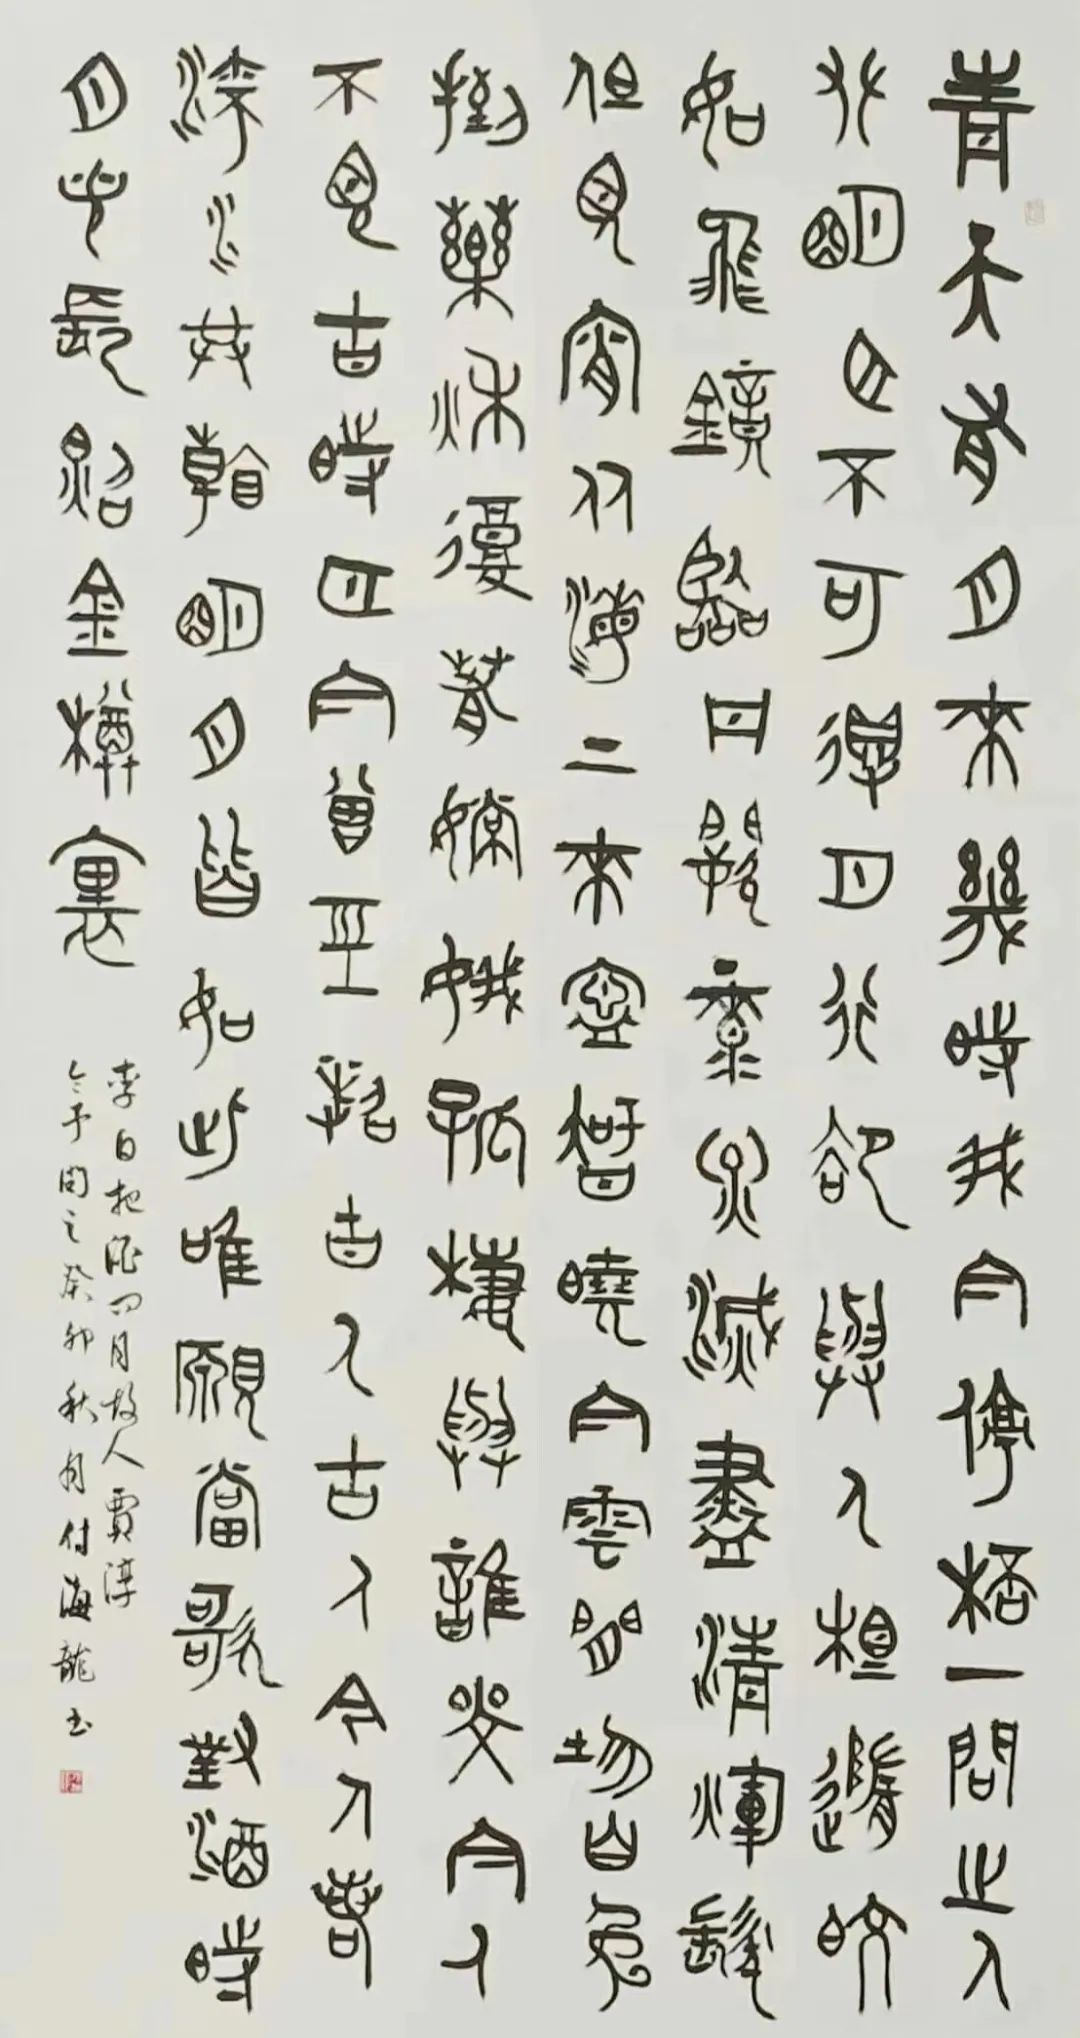 青天有月來幾時我今停桮一問之人
攀明月不可得月行卻與人相隨皎
如飛鏡臨丹闕綠煙滅盡清輝發
但見宵從海上來寧知曉向雲間没白兔
搗藥秋復春嫦娥孤棲與誰鄰今人
不見古時月今月曾經照古人古人今人若
流水共看明月皆如此唯願當歌對酒時
月光長照金樽裏
李白把酒問月故人賈淳
令予問之癸卯秋月付海龍書